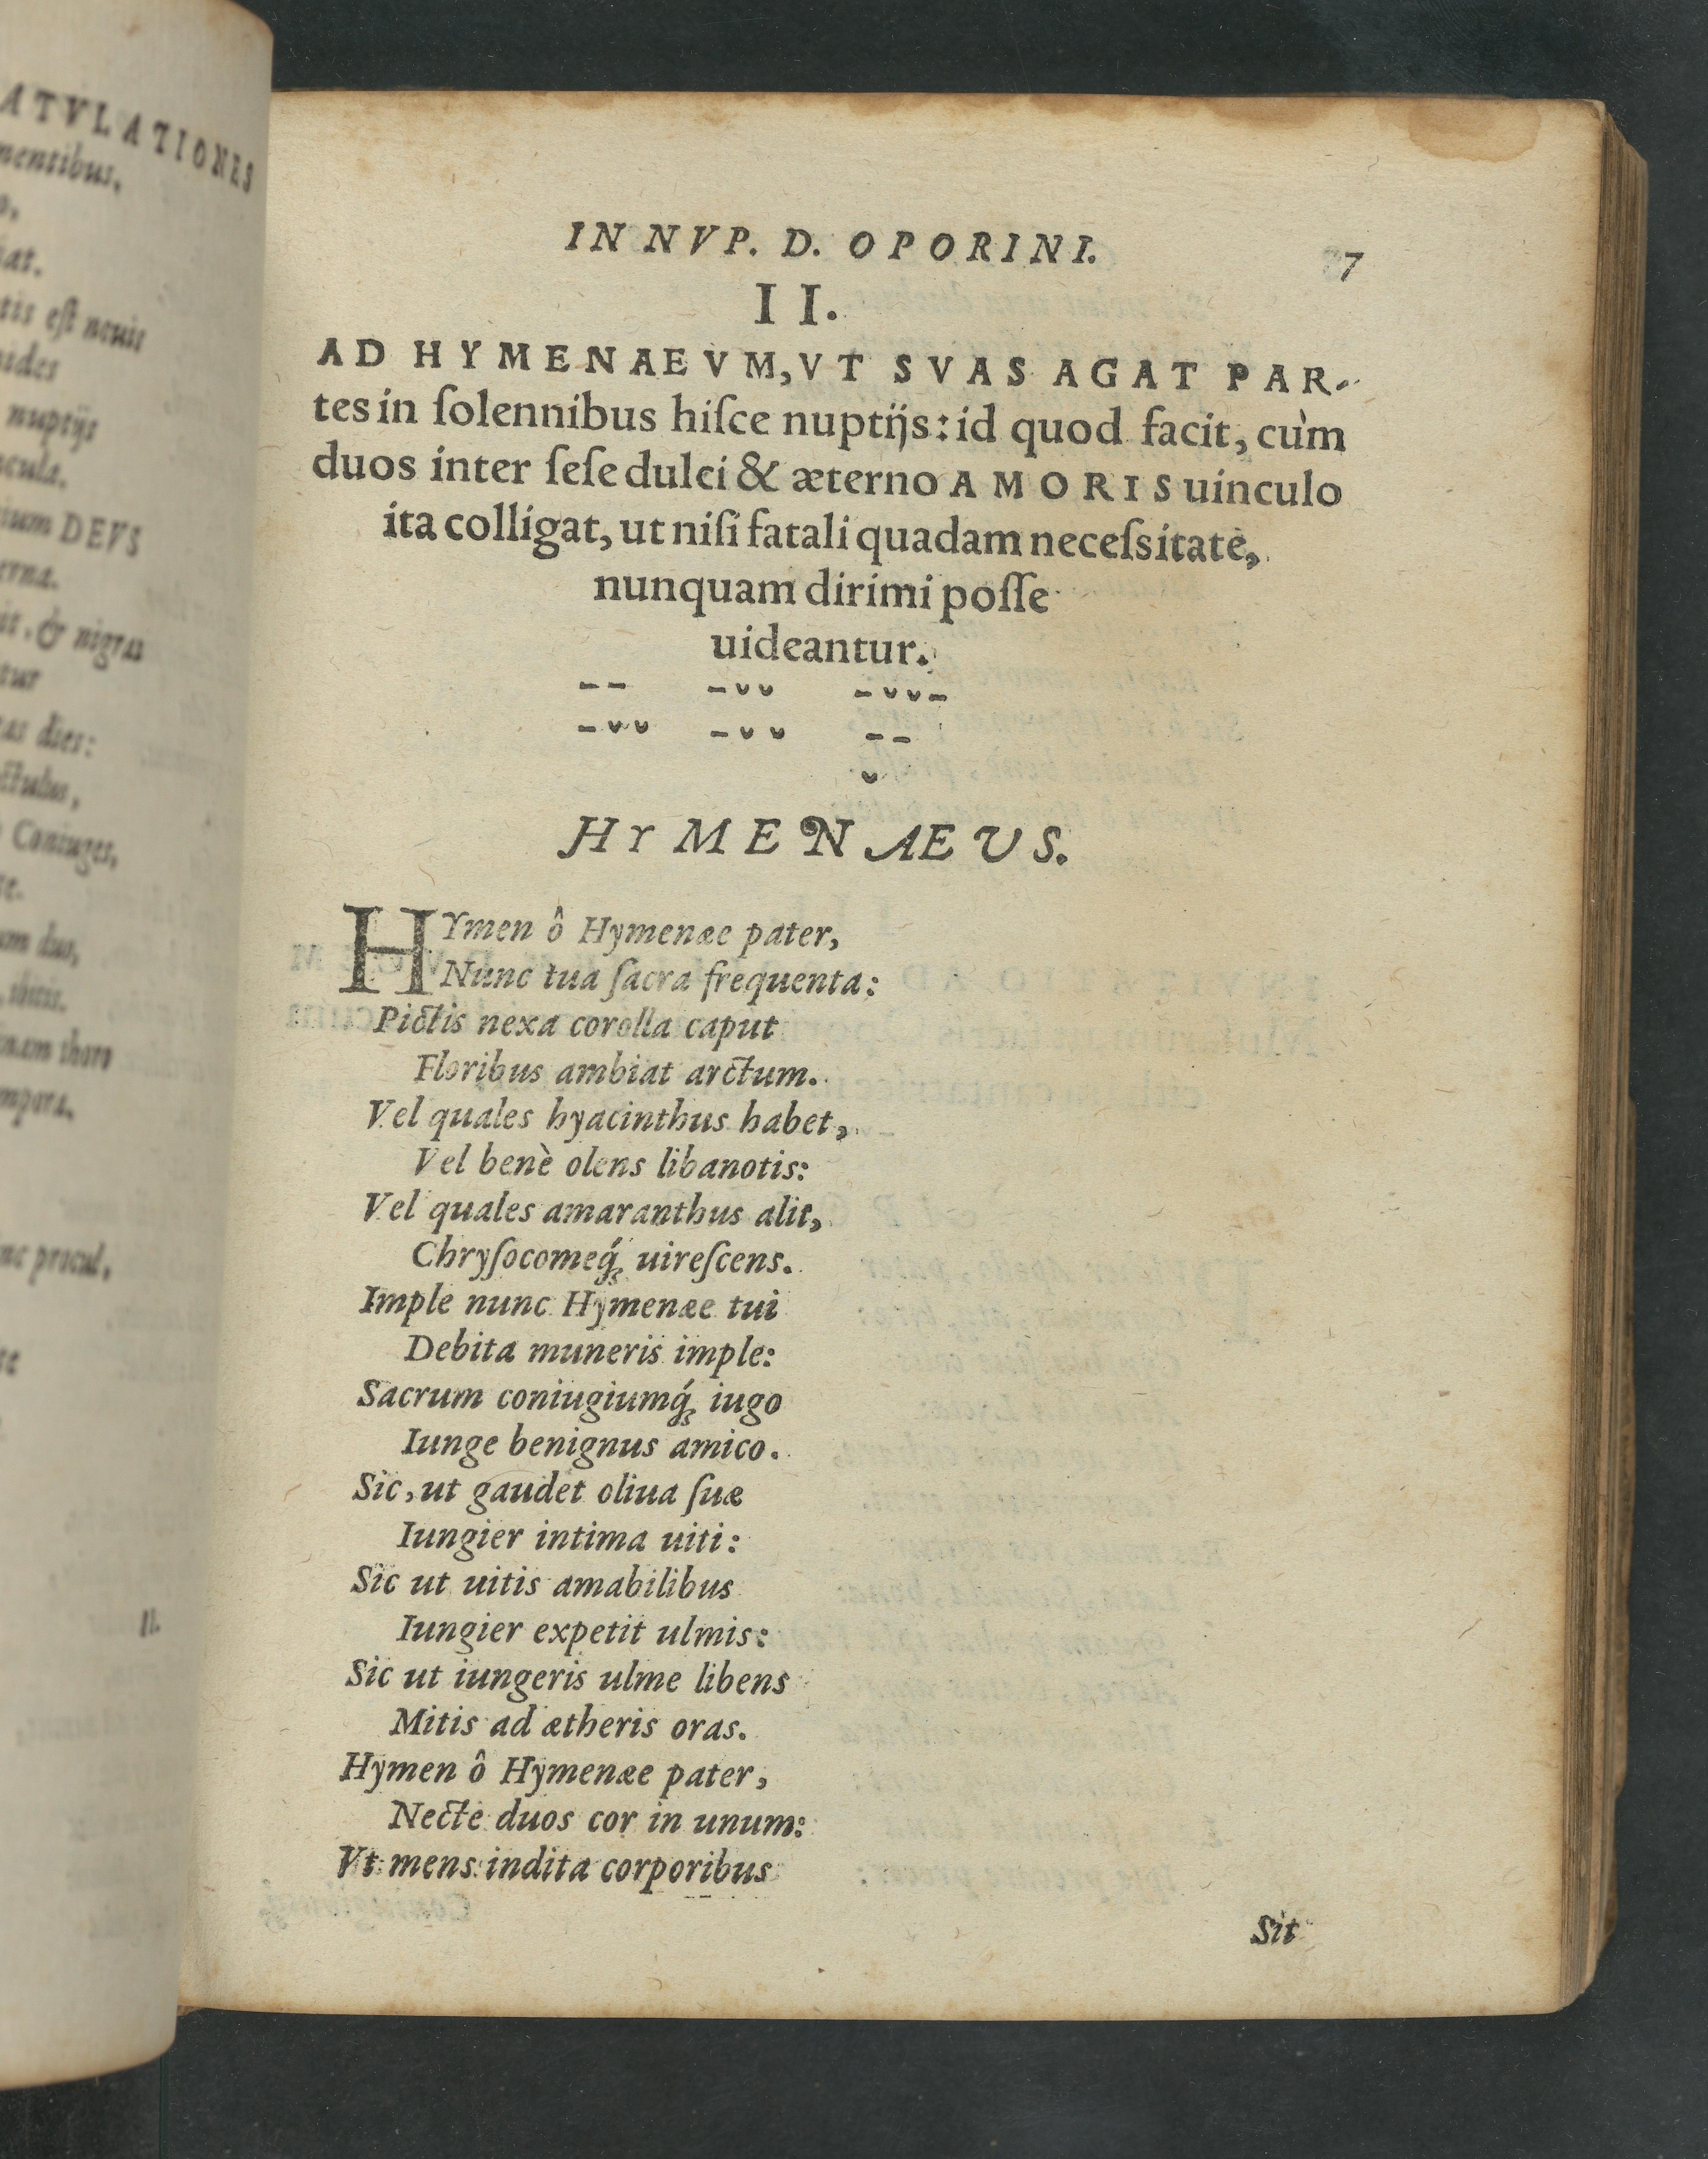 ATVLATIONES
mentibus,
at.
tis est neuis
nuptijs
DEVS
erna.
& nigras
tur
as dies:
Coniuges,
um duo,
nc procul,
II.
IN NVP. D. OPORINI. 7
II.
AD HYMENAEVM, VT SVAS AGAT PAR-
tes in ſolennibus hiſce nuptijs: id quod facit, cùm
duos inter ſeſe dulci & æterno AMORIS uinculo
ita colligat, ut niſi fatali quadam neceſsitate,
nunquam dirimi poſſe
uideantur.
– – – ᴗ ᴗ – ᴗ ᴗ –
– ᴗ ᴗ – ᴗ ᴗ – –
ᴗ
HYMENAEVS.
HYmen ô Hymenæe pater,
Nunc tua ſacra frequenta:
Pictis nexa corolla caput
Floribus ambiat arctum.
Vel quales hyacinthus habet,
Vel benè olens libanotis:
Vel quales amaranthus alit,
Chryſocomeq́; uireſcens.
Imple nunc Hymenæe tui
Debita muneris imple:
Sacrum coniugiumq́; iugo
Iunge benignus amico.
Sic, ut gaudet oliua ſuæ
Iungier intima uiti:
Sic ut uitis amabilibus
Iungier expetit ulmis:
Sic ut iungeris ulme libens
Mitis ad ætheris oras.
Hymen ô Hymenæe pater,
Necte duos cor in unum:
Vt mens indita corporibus
Sit